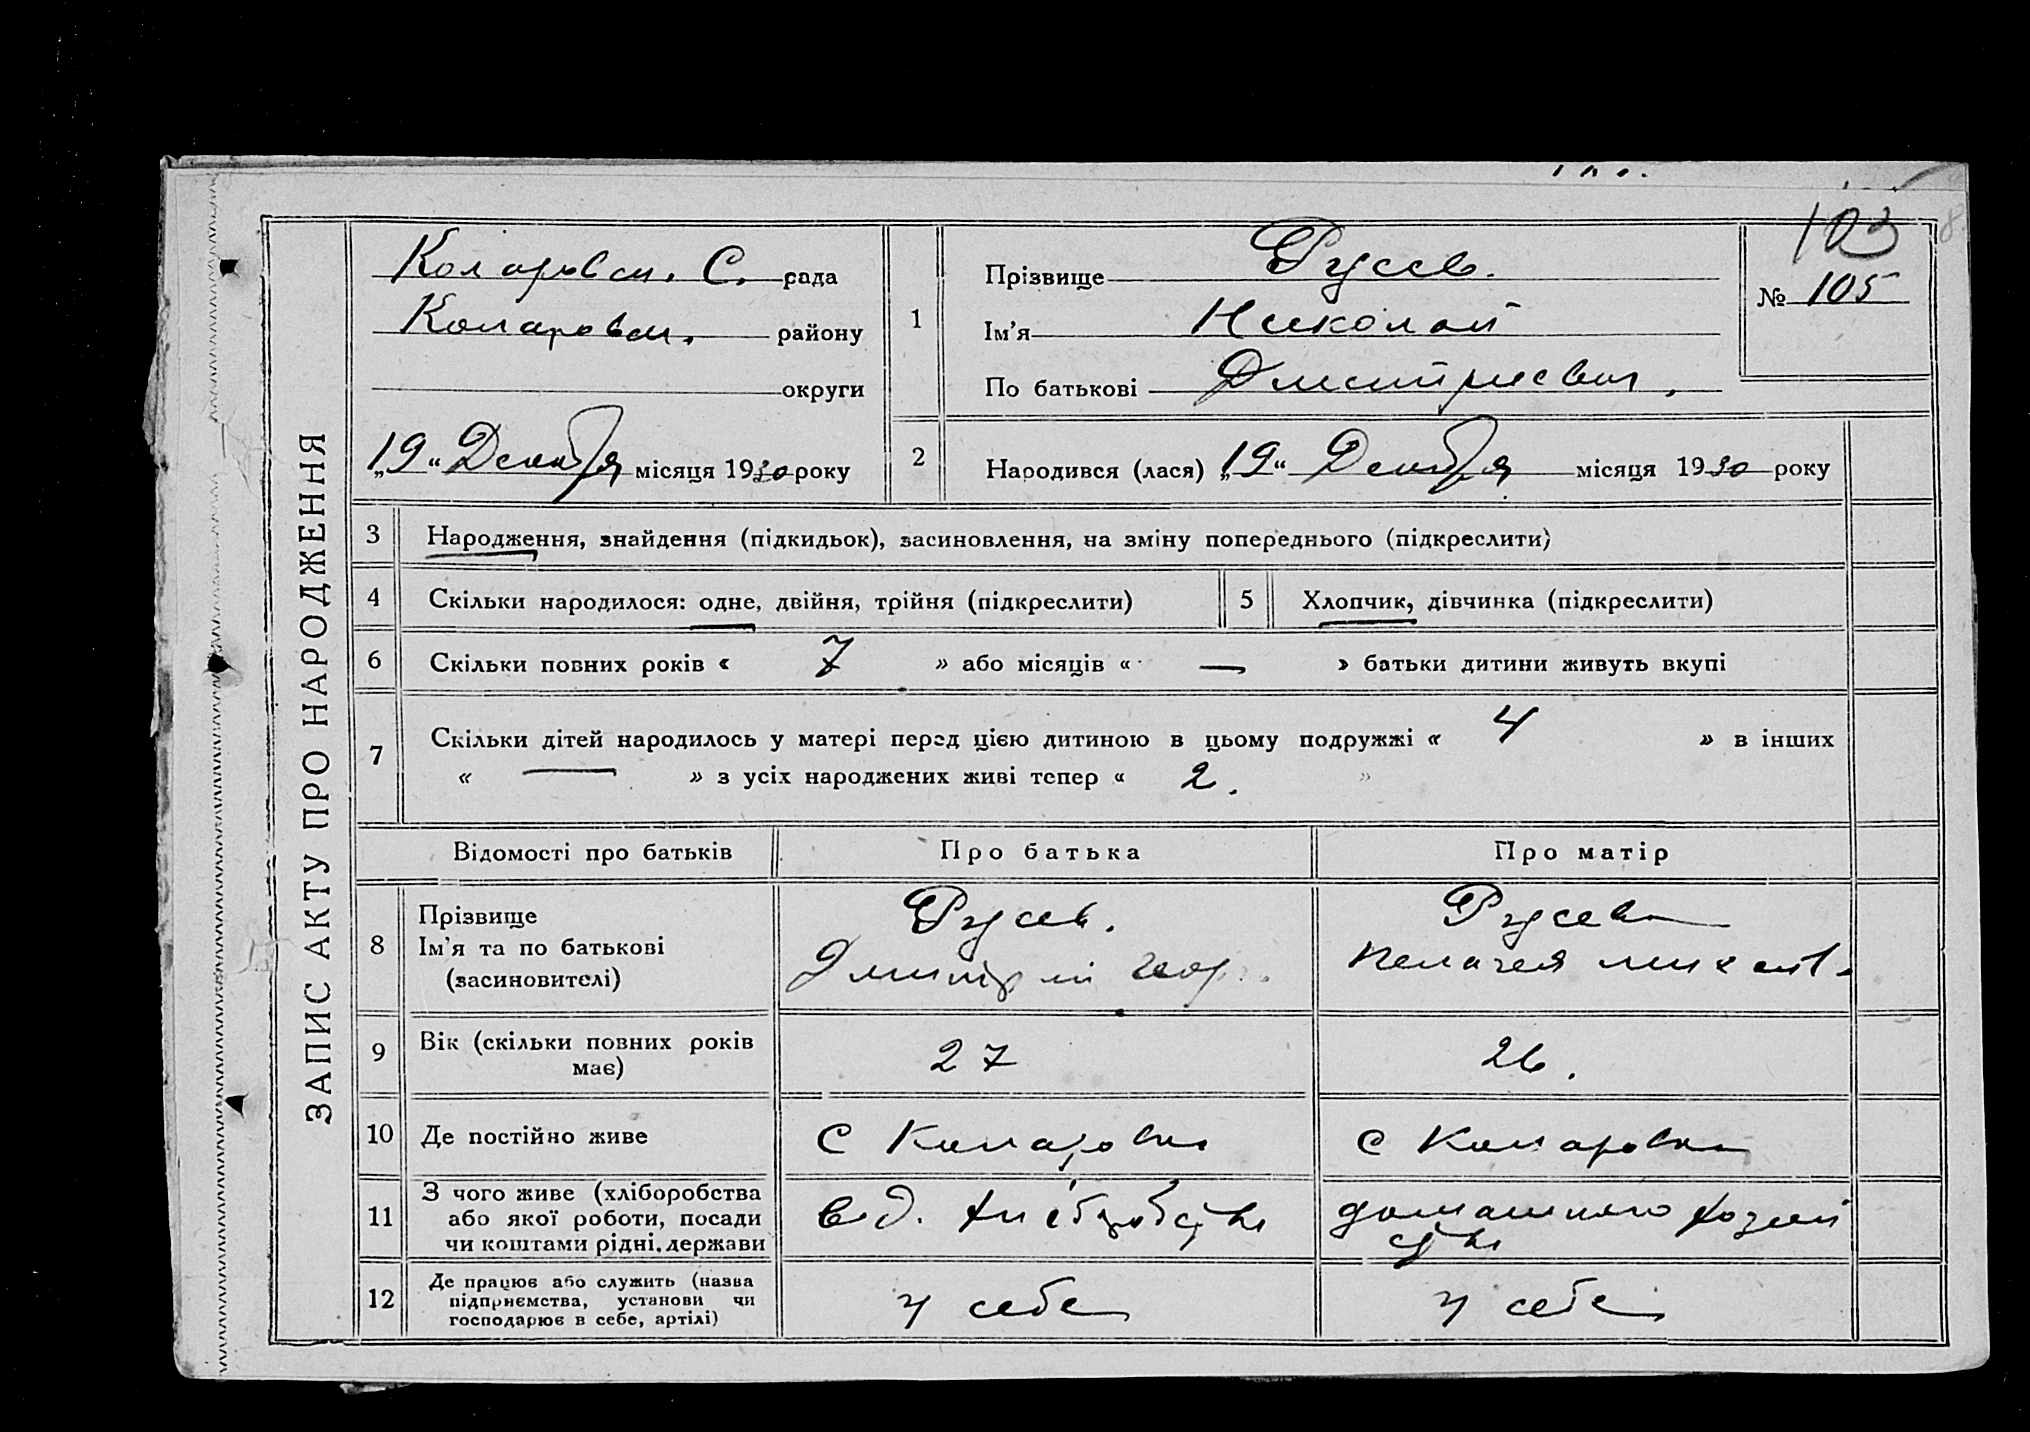 103
ЗАПИС АКТУ ПРО НАРОДЖЕННЯ
Коларовск. С. рада
Коларовск. району
округи
„19“ Декабря місяця 1930 року
1
Прізвище Русев.
Ім'я Николай
По батькові Дмитриевич.
№ 105
2
Народився (лася) „19“ Декабря місяця 1930 року
3 Народження, знайдення (підкидьок), засиновлення, на зміну попереднього (підкреслити)
4 Скільки народилося: одне, двійня, трійня (підкреслити)
5 Хлопчик, дівчинка (підкреслити)
6 Скільки повних років « 7 » або місяців « — » батьки дитини живуть вкупі
7 Скільки дітей народилось у матері перед цією дитиною в цьому подружжі « 4 » в інших
« — » з усіх народжених живі тепер « 2. »
Відомості про батьків Про батька Про матір
8 Прізвище
Ім'я та по батькові
(засновителі)
Русев.
Дмитрий Геор
Русева
Пелагея Михайл.
9 Вік (скільки повних років
має)
27
26.
10 Де постійно живе
с Коларовка
с Коларовка
11 З чого живе (хліборобства
або якої роботи, посади
чи коштами рідні, держави
від. хліборобства
домашнього хозяй
ства
12 Де працює або служить (назва
підприємства, установи чи
господарює в себе, артілі)
у себе
у себе